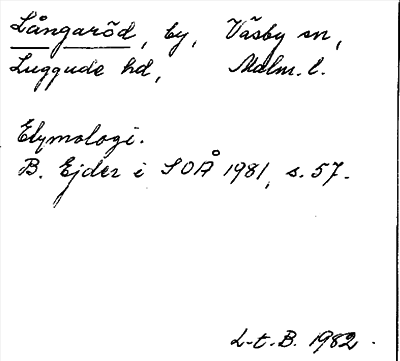 Långaröd, by, Väsby sn,
Luggude hd, Malm. l.
Etymologi.
B. Ejder i SOÅ 1981, s. 57.
L-t. B. 1982.